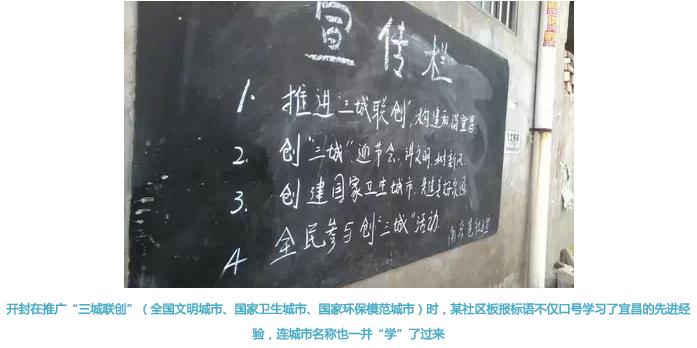 宣传栏
1. 推进"三城联创",构建和谐宜昌
2. 创"三城",迎节会,讲文明,树新风
3. 创建国家卫生城市,
4 全民参与创"三城"活动
开封在推广“三城联创”(全国文明城市、国家卫生城市、国家环保模范城市)时,某社区板报标语不仅口号学习了宜昌的先进经
验,连城市名称也一并“学”了过来